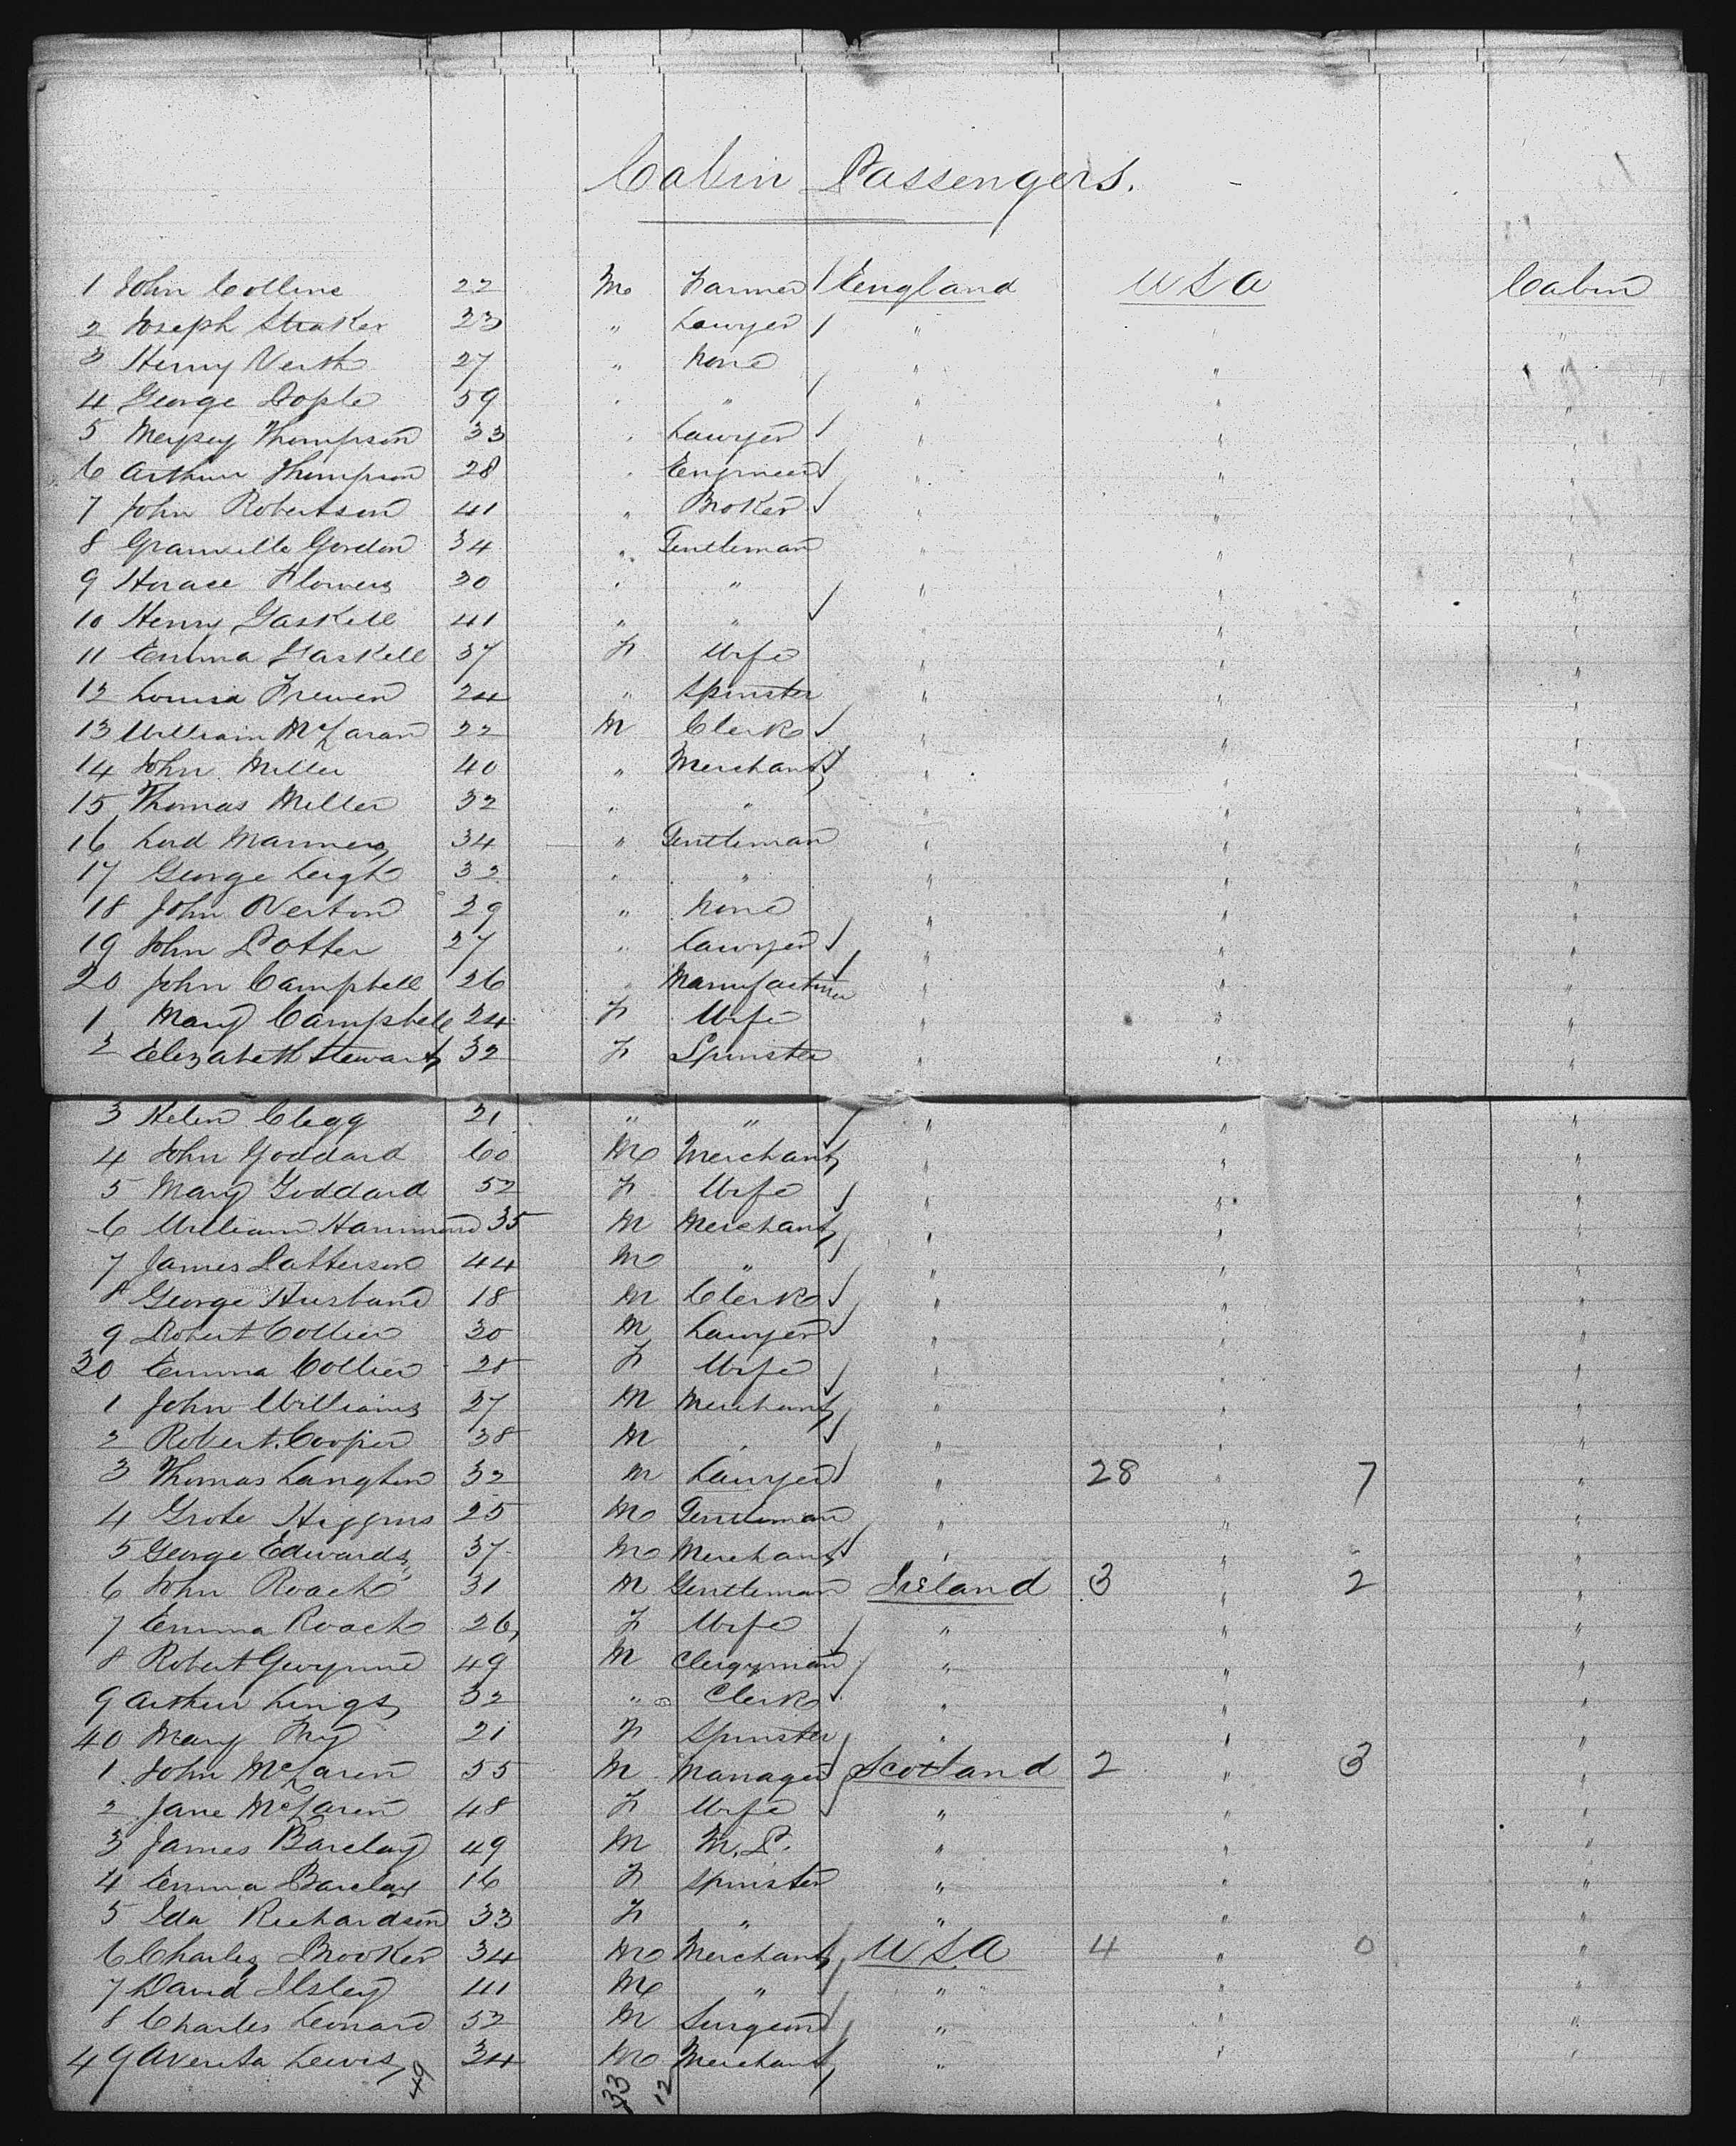 Cabin Passengers.
1 John Collins 22 M Farmer England USA Cabin
2 Joseph Straker 23 " Lawyer " " "
3 Henry 27 " None " " "
4 George 59 " " " " "
5 Thompson 33 " Lawyer " " "
6 Arthur Thompson 28 " Engineer " " "
7 John Robertson 41 " Broker " " "
8 Granville Gordon 34 " Gentleman " " "
9 Horace Flowers 30 " " " " "
10 Henry Gaskell 41 " " " " "
11 Emma Gaskell 37 F Wife " " "
12 Louisa Frewen 24 " Spinster " " "
13 William McLaran 22 M Clerk " " "
14 John Miller 40 " Merchant " " "
15 Thomas Miller 32 " " " " "
16 Lord Manners 34 " Gentleman " " "
17 George Leigh 32 " " " " "
18 John Overton 29 " None " " "
19 John Potter 27 " Lawyer " " "
20 John Campbell 26 " Manufacturer " " "
1 Mary Campbell 24 F Wife " " "
2 Elizabeth Stewart 32 F Spinster " " "
3 Helen Clegg 21 " " " " "
4 John Goddard 60 M Merchant " " "
5 Mary Goddard 52 F Wife " " "
6 William Hammond 35 M Merchant " " "
7 James Patterson 44 M " " " "
8 George Husband 18 M Clerk " " "
9 Robert Collier 30 M Lawyer " " "
30 Emma Collier 28 F Wife " " "
1 John Williams 27 M Merchant " " "
2 Robert Cooper 38 M " " " "
3 Thomas Langton 32 M Lawyer " 28 " 7 "
4 Grote Higgins 25 M Gentleman " " "
5 George Edwards 37 M Merchant " " "
6 John Roach 31 M Gentleman Ireland 3 " 2 "
7 Emma Roach 26 F Wife " " "
8 Robert Gwynne 49 M Clergyman " " "
9 Arthur Lings 32 " Clerk " " "
40 Mary Fry 21 F Spinster " " "
1 John McLaren 55 M Manager Scotland 2 " 3 "
2 Jane McLaren 48 F Wife " " "
3 James Barclay 49 M M.P. " " "
4 Emma Barclay 16 F Spinster " " "
5 Ida Richardson 33 F " " " "
6 Charles Brooker 34 M Merchant USA 4 " 0 "
7 David Ilsley 41 M " " " "
8 Charles Leonard 52 M Surgeon " " "
49 Lewis 34 M Merchant " " "
49 33 12